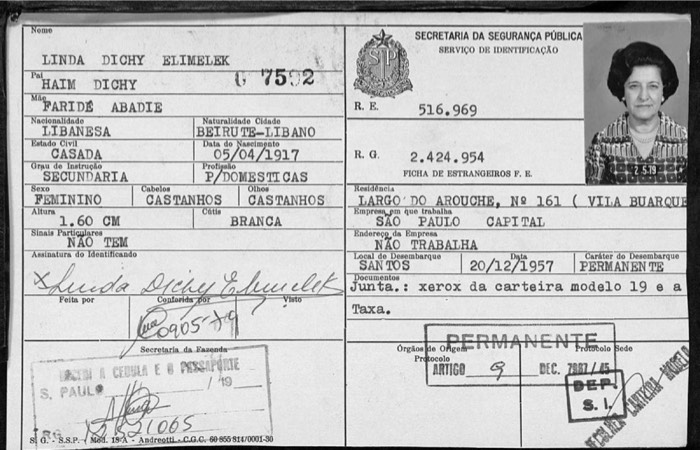 Nome
LINDA DICHY ELIMELEK
Pai
HAIM DICHY
7592
Mãe
FARIDÉ ABADIE
Nacionalidade Naturalidade Cidade
LIBANESA BEIRUTE-LIBANO
Estado Civil Data do Nascimento
CASADA 05/04/1917
Grau de Instrução Profissão
SECUNDARIA P/DOMESTICAS
Sexo Cabelos Olhos
FEMININO CASTANHOS CASTANHOS
Altura Cútis
1.60 CM BRANCA
Sinais Particulares
NÃO TEM
Assinatura do Identificando
x Linda Dichy Elimelek
Feita por Conferida por Visto
Secretaria da Fazenda
RECEBI A CEDULA E O PASSAPORTE
S. PAULO / /19
RG
S. G. - S.S.P. - Mod. 18 A - Andreotti - C.G.C. 60 855 814/0001-30
SECRETARIA DA SEGURANÇA PÚBLICA
SERVIÇO DE IDENTIFICAÇÃO
SP
R. E. 516.969
R. G. 2.424.954
FICHA DE ESTRANGEIROS F. E.
Residência
LARGO DO AROUCHE, Nº 161 ( VILA BUARQUE
Empresa em que trabalha
SÃO PAULO CAPITAL
Endereço da Empresa
NÃO TRABALHA
Local de Desembarque Data Caráter do Desembarque
SANTOS 20/12/1957 PERMANENTE
Documentos
Junta.: xerox da carteira modelo 19 e a
Taxa.
PERMANENTE
Órgãos de Origem Protocolo Sede
Protocolo
ARTIGO 9 DEC. 7987/45
DEP.
S. I.